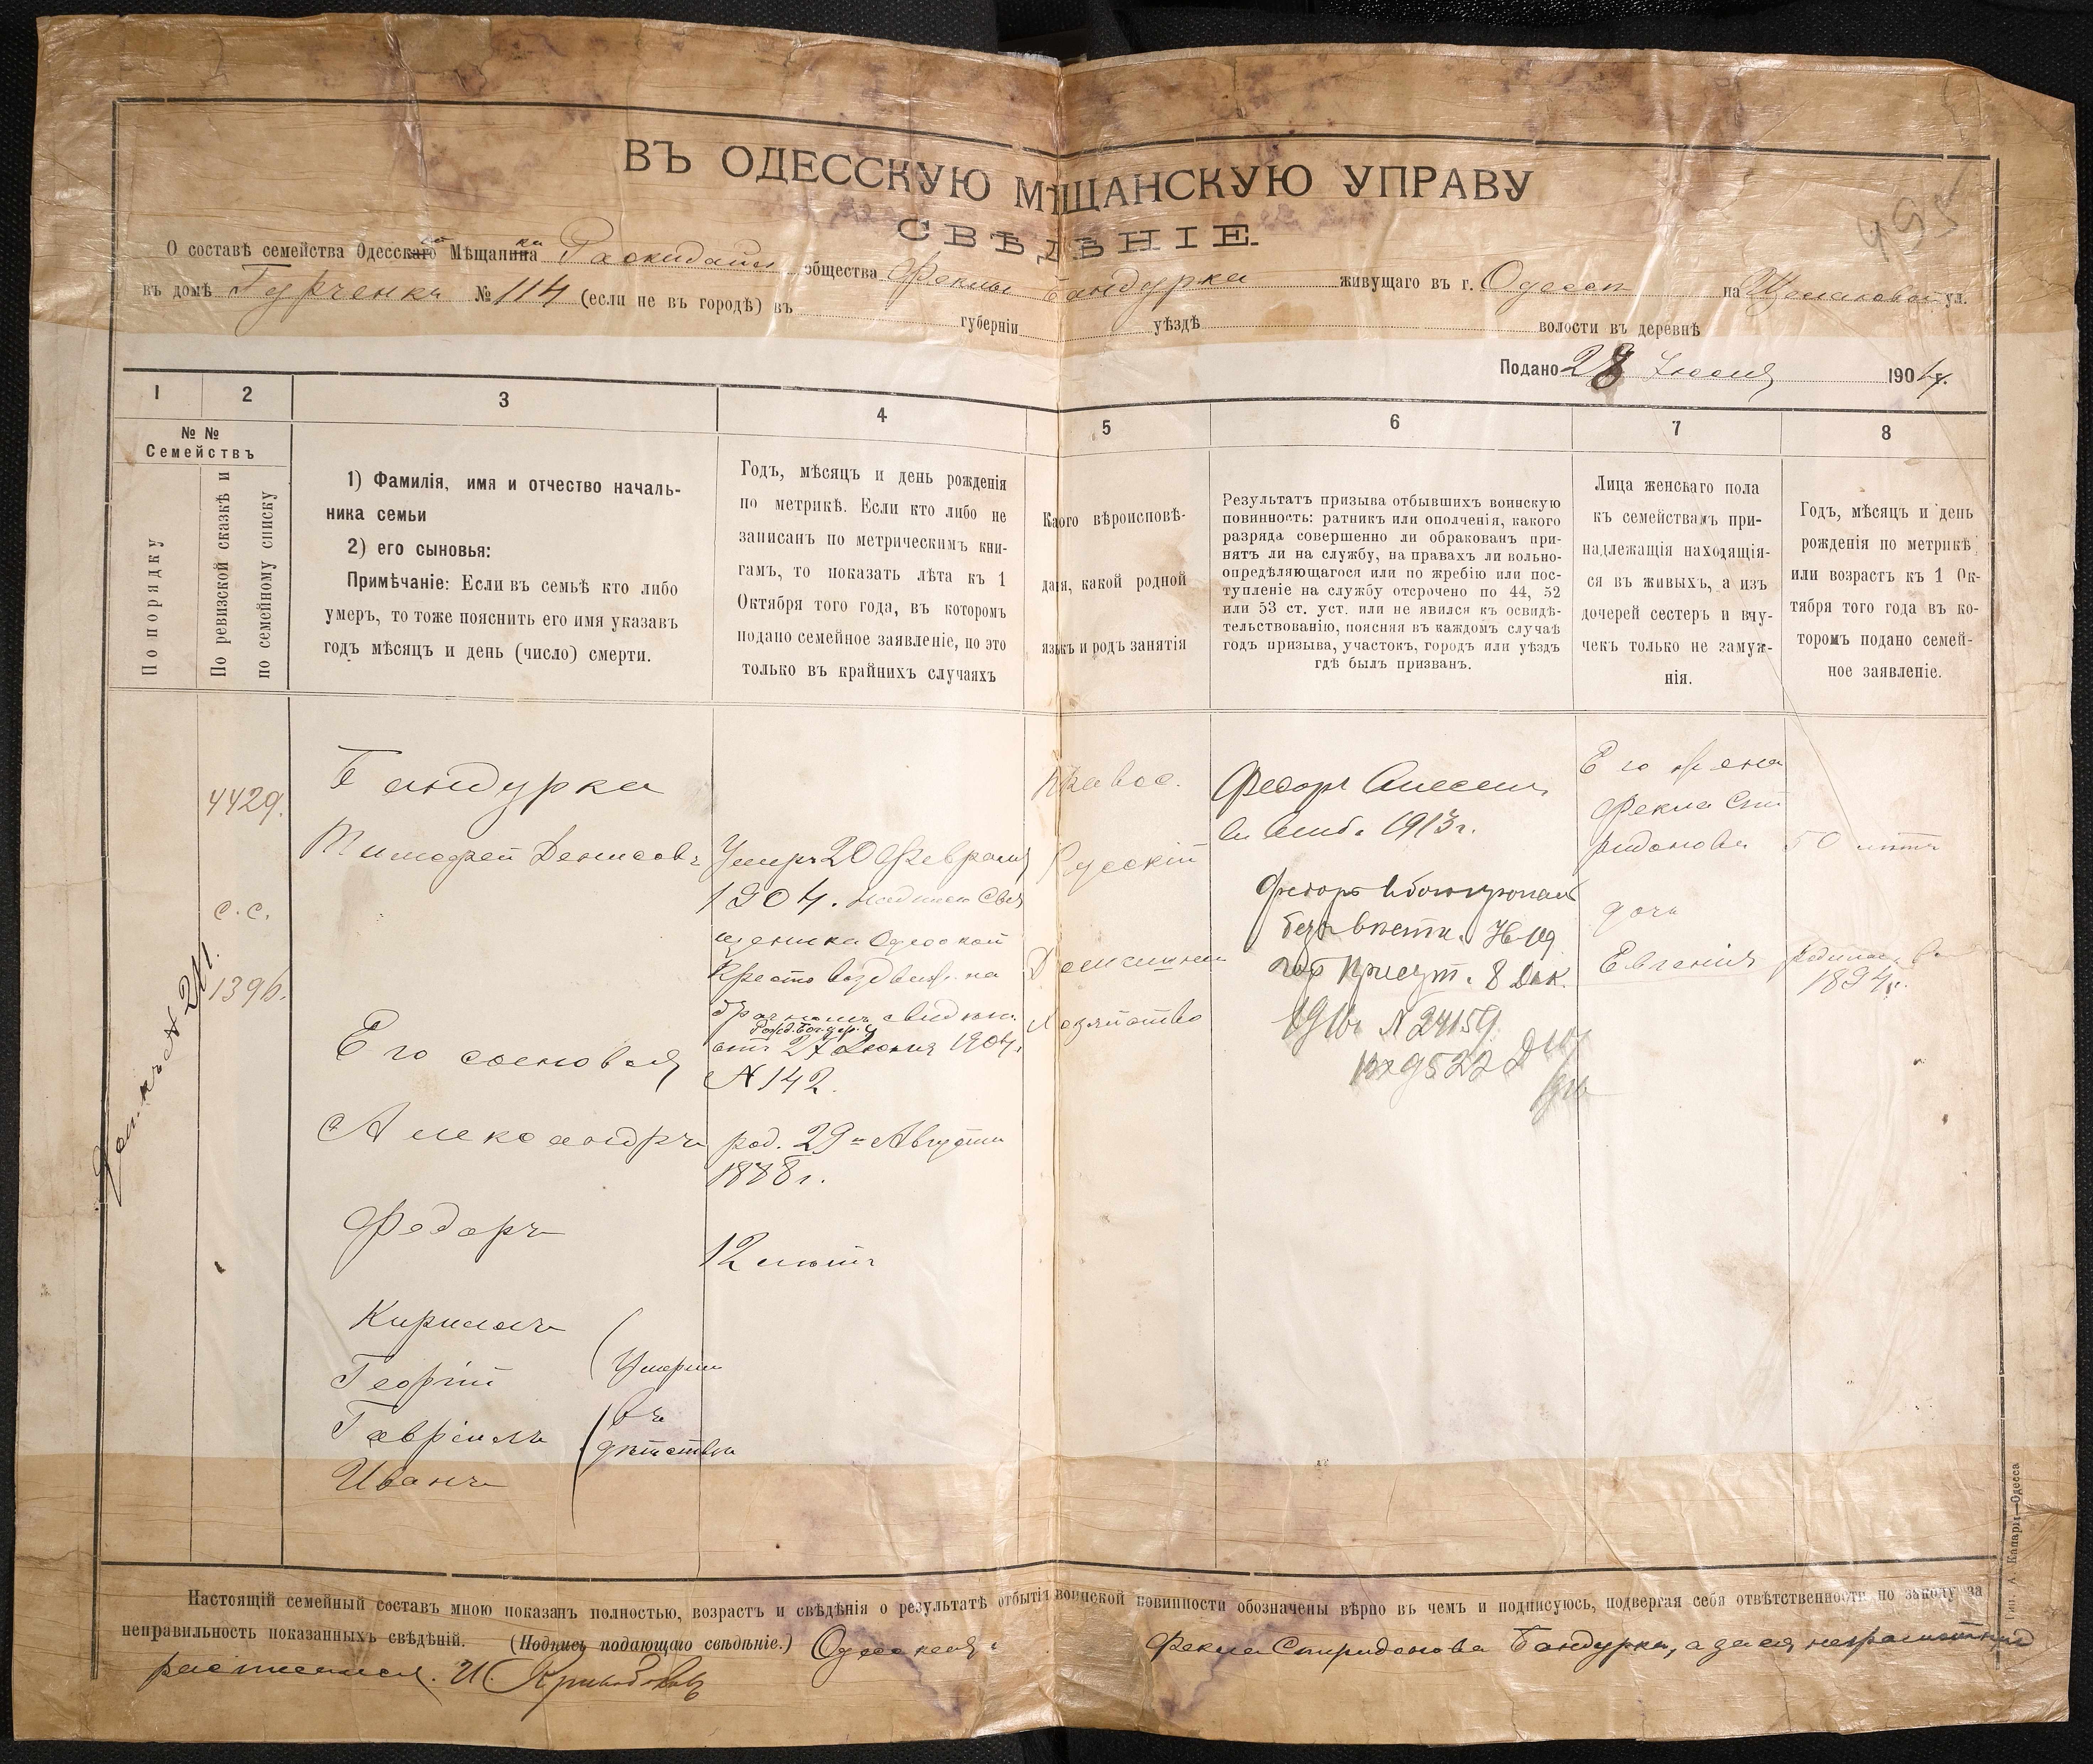 ВЪ ОДЕССКУЮ МѢЩАНСКУЮ УПРАВУ
СВѢДѢНІЕ.
О составѣ семейства Одесскаго Мѣщанина общества Феклы Бандурка живущаго въ г. Одессѣ на ул.
въ домѣ Гурченка № 114 (если не въ городѣ) въ губерніи уѣздѣ волости въ деревнѣ
Подано 28 Іюня 1904 г.
495
1 2 3 4 5 6 7 8
№ №
Семействъ
По порядку
По ревизской сказкѣ и
по семейному списку
1) Фамилія, имя и отчество началь-
ника семьи
2) его сыновья:
Примѣчаніе: Если въ семьѣ кто либо
умеръ, то тоже пояснить его имя указавъ
годъ мѣсяцъ и день (число) смерти.
Годъ, мѣсяцъ и день рожденія
по метрикѣ. Если кто либо не
записанъ по метрическимъ кни-
гамъ, то показать лѣта къ 1
Октября того года, въ которомъ
подано семейное заявленіе, но это
только въ крайнихъ случаяхъ
Какого вѣроисповѣ-
данія, какой родной
языкъ и родъ занятія
Результатъ призыва отбывшихъ воинскую
повинность: ратникъ или ополченія, какого
разряда совершенно ли обракованъ при-
нятъ ли на службу, на правахъ ли вольно-
опредѣляющагося или по жребію или пос-
тупленіе на службу отсрочено по 44, 52
или 53 ст. уст. или не явился къ освидѣ-
тельствованію, поясняя въ каждомъ случаѣ
годъ призыва, участокъ, городъ или уѣздъ
гдѣ былъ призванъ.
Лица женскаго пола
къ семействамъ при-
надлежащія находящія-
ся въ живыхъ, а изъ
дочерей сестеръ и вну-
чекъ только не замуж-
нія.
Годъ, мѣсяцъ и день
рожденія по метрикѣ
или возрастъ къ 1 Ок-
тября того года въ ко-
торомъ подано семей-
ное заявленіе.
4429.
с.с.
1396.
Бандурка
Тимофей Денисовъ
Его сыновья
Александръ
Федоръ
Кириллъ
Георгій
Гавріилъ
Иванъ
Умерли
въ
дѣтствѣ
Умеръ 20 Февраля
1904.
Одесской
отъ 27 Іюня 1904 г.
№ 142.
род. 29го Августа
1878 г.
12 лѣтъ
Правос.
Русскій
Домашнее
хозяйство
Федоръ
1913 г.
Федоръ
безъ
Присут. 8 Дек.
№ 24159
9522
Его жена
Фекла Спи
ридонова
50 лѣтъ
дочь
Евгенія
1894 г.
Настоящій семейный составъ мною показанъ полностью, возрастъ и свѣдѣнія о результатѣ отбытія воинской повинности обозначены вѣрно въ чемъ и подписуюсь, подвергая себя отвѣтственности по закону за
неправильность показанныхъ свѣдѣній. (Подпись подающаго свѣдѣніе.) Одесская Фекла Спиридонова Бандурка, а за ея неграмотной
расписался. И.
Тип. А. Капари—Одесса